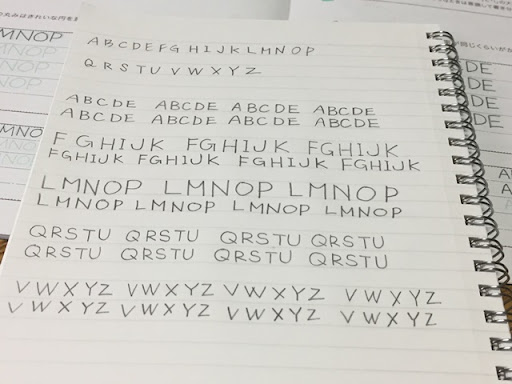 ABCDEFGHIJKLMNOP
QRSTUVWXYZ
ABCDE ABCDE ABCDE ABCDE
ABCDE ABCDE ABCDE ABCDE
FGHIJK FGHIJK FGHIJK
FGHIJK FGHIJK FGHIJK FGHIJK
LMNOP LMNOP LMNOP
LMNOP LMNOP LMNOP LMNOP
QRSTU QRSTU QRSTU QRSTU
QRSTU QRSTU QRSTU QRSTU
VWXYZ VWXYZ VWXYZ VWXYZ
VWXYZ VWXYZ VWXYZ VWXYZ
MNOP
MNOP
MNOP
MNO
DE
CDE
CDE
CDE